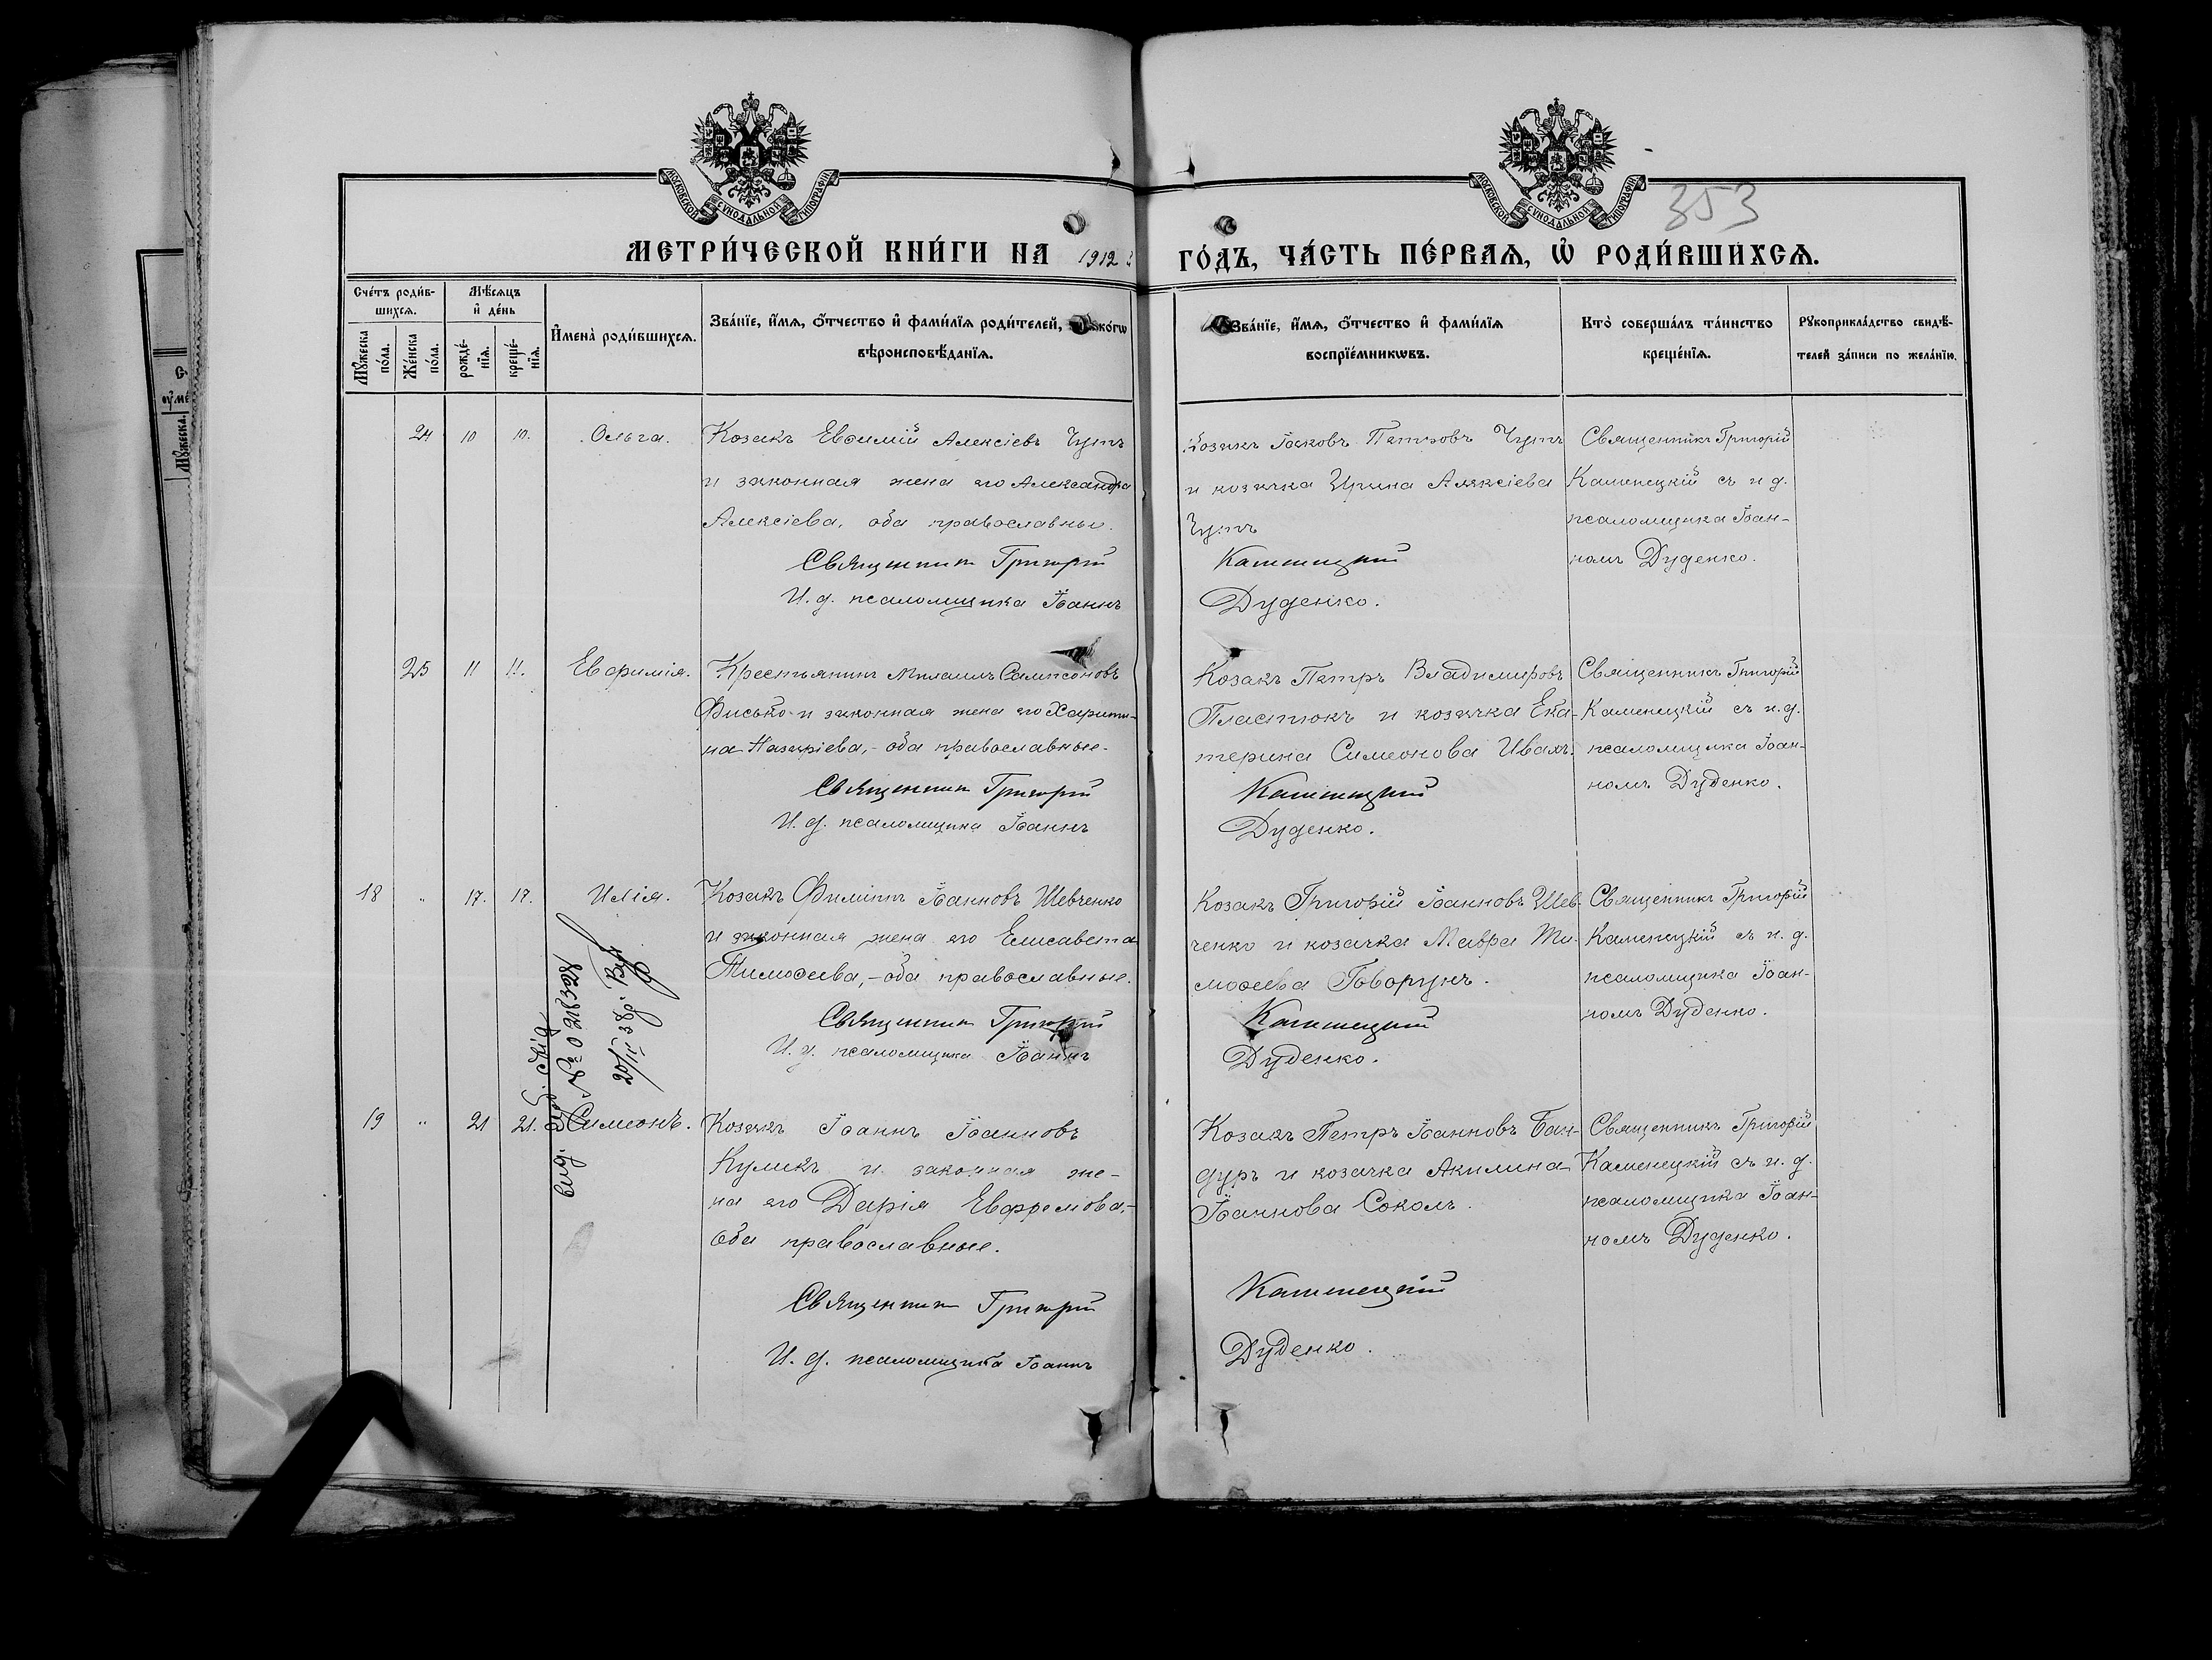 МОСКОВСКОЙ СѴНОДАЛЬНОЙ ТИПОГРАФІИ
МОСКОВСКОЙ СѴНОДАЛЬНОЙ ТИПОГРАФІИ
353
МЕТРИ́ЧЕСКОЙ КНИ́ГИ НА 1912 ГО́ДЪ, ЧА́СТЬ ПЕ́РВАѦ, Ѡ҆ РОДИ́ВШИХСѦ.
Сче́тъ роди́в-
шихсѧ.
Мꙋ́жеска
по́ла.
Же́нска
по́ла.
Мѣ́сѧцъ
и҆ де́нь
рожде́-
нїѧ.
креще́-
нїѧ.
И҆мена̀ роди́вшихсѧ.
Зва́нїе, и҆́мѧ, ѻ҆́тчество и҆ фами́лїѧ роди́телей, ко́гѡ
вѣроисповѣ́данїѧ.
Зва́нїе, и҆́мѧ, ѻ҆́тчество и҆ фами́лїѧ
воспрїе́мникѡвъ.
Кто̀ соверша́лъ та́инство
креще́нїѧ.
Рꙋкоприкла́дство свидѣ́-
телей за́писи по жела́нїю.
24 10 10. Ольга.
Козакъ Евѳимій Алексіевъ Чутъ
и законная жена его Александра
Алексіева, оба православные.
Священникъ Григорій
И. д. псаломщика Іоаннъ
Козакъ Іаковъ Петровъ Чутъ
и козачка Ирина Алексіева
Чутъ
Каменецкій
Дуденко.
Священникъ Григорій
Каменецкій съ и д.
псаломщика Іоан-
номъ Дуденко.
25 11 11. Евфимія.
Крестьянинъ Михаилъ Сампсоновъ
Фисько и законная жена его Харити-
на Назаріева,- оба православные.
Священникъ Григорій
И. д. псаломщика Іоаннъ
Козакъ Петръ Владимировъ
Пластюкъ и козачка Ека-
терина Симеонова Ивахъ.
Каменецкій
Дуденко.
Священникъ Григорій
Каменецкій съ и. д.
псаломщика Іоан-
номъ Дуденко.
18 " 17. 17. Илія.
Козакъ Филиппъ Іоанновъ Шевченко
и законная жена его Елисавета
Тимоѳеева,- оба православные.
Священникъ Григорій
И. д. псаломщика Іоаннъ
Козакъ Григорій Іоанновъ Шев-
ченко и козачка Мавра Ти-
моѳеева Говорунъ.
Каменецкій
Дуденко.
Священникъ Григорій
Каменецкій съ и. д.
псаломщика Іоан-
номъ Дуденко.
№ 0 218328
19 " 21 21. Симеонъ.
Козакъ Іоаннъ Іоанновъ
Куликъ и законная же-
на его Дарія Евфремова,-
оба православные.
Священникъ Григорій
И. д. псаломщика Іоаннъ
Козакъ Петръ Іоанновъ Бан-
дуръ и козачка Акилина
Іоаннова Соколъ.
Каменецкій
Дуденко.
Священникъ Григорій
Каменецкій съ и. д.
псаломщика Іоан-
номъ Дуденко.